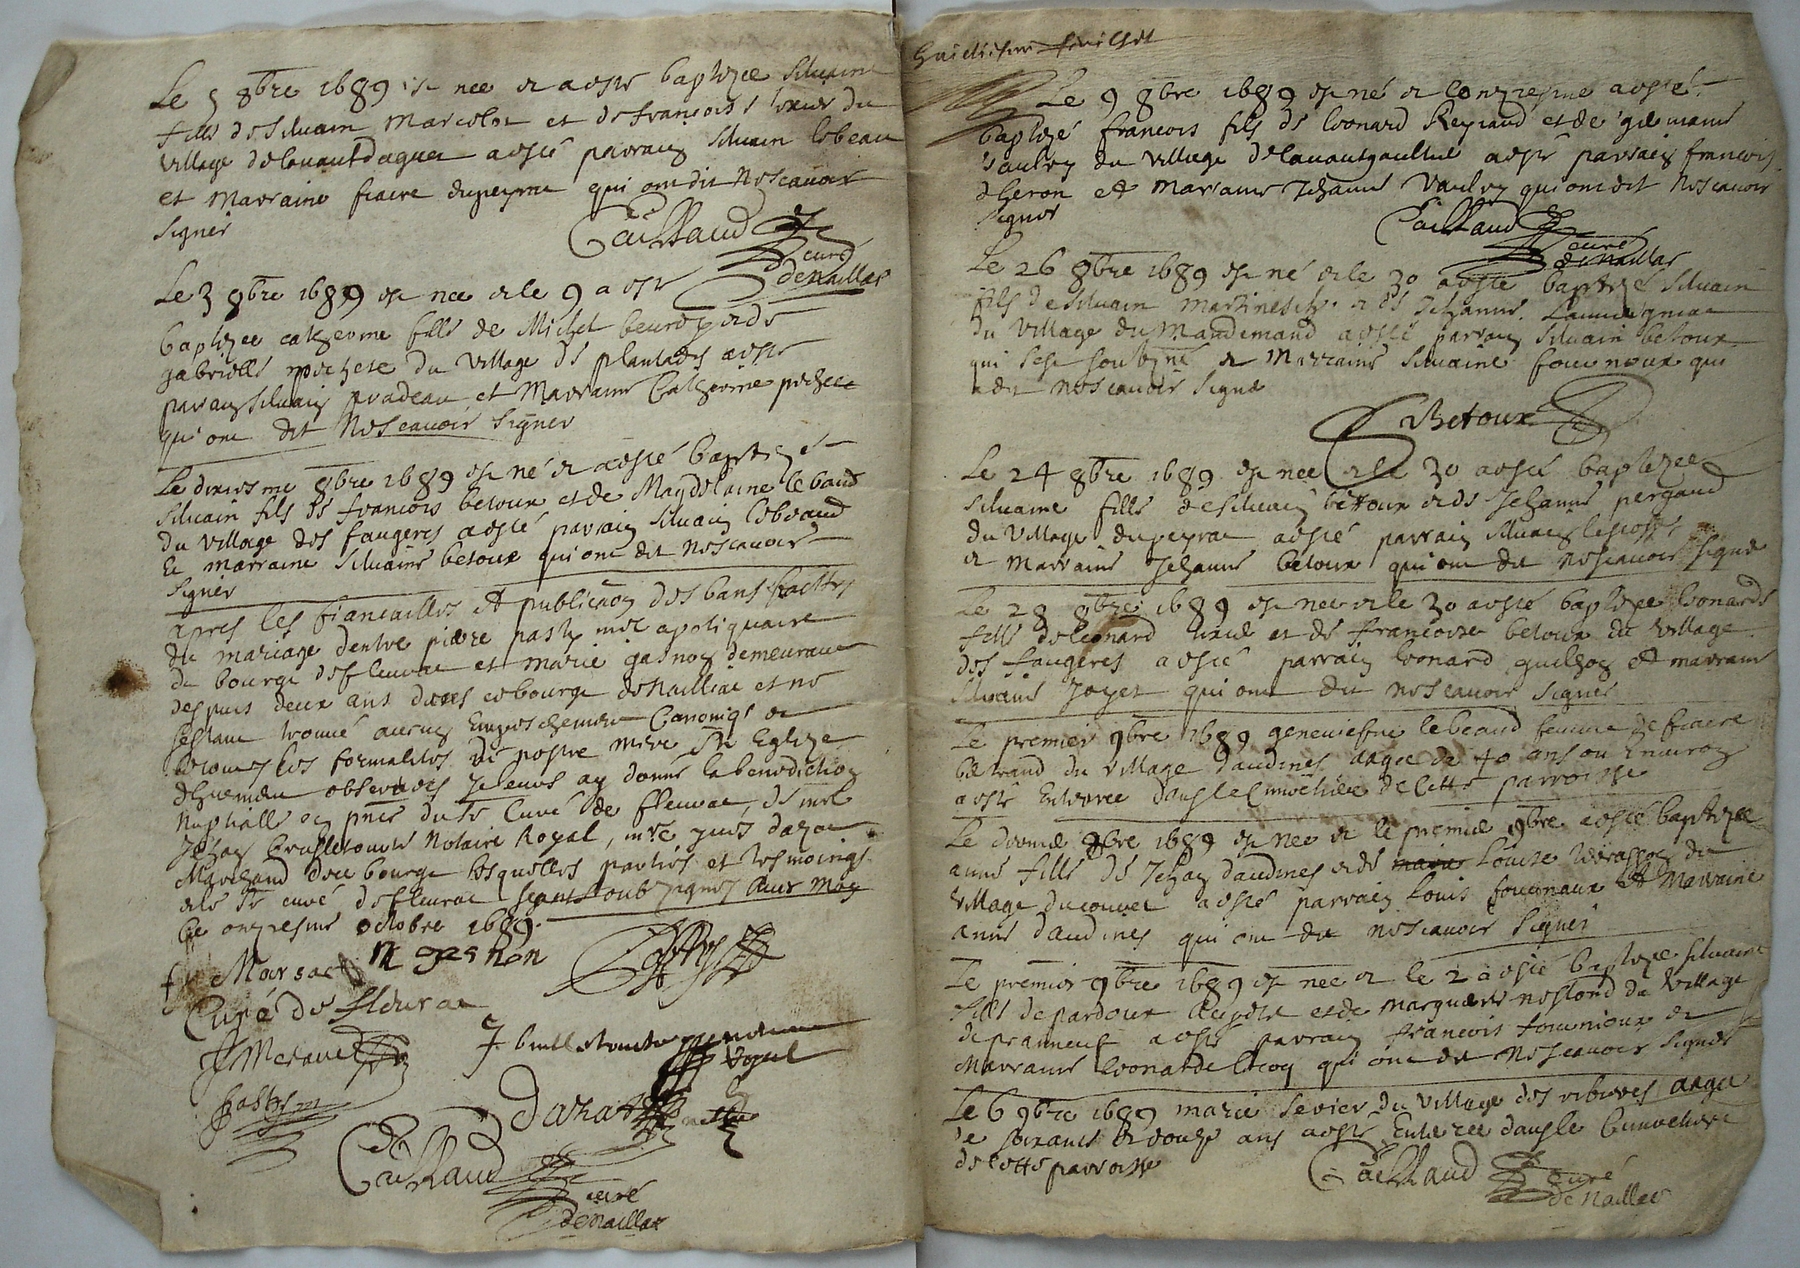 Le 5 8bre 1689 est nee et a este baptizee Silvaine
fille de Silvain Marcolot et de francoise du
village de lavautdaguet a esté parrain Silvain lebeau
et Marraine fiacre dupeyrat qui ont dit ne scavoir
signer
Caillaud
curé
de naillat
Le 3 8bre 1689 est nee et le 9 a este
baptizee catherine fille de Michel et de
gabrielle du village de plantadis a este
parrain Silvain pradeau et Marraine Catherine
qui ont dit ne scavoir signer
Le dixiesme 8bre 1689 est né et a esté baptizé
Silvain fils de francois betoux et de Magdelaine lebaud
du village des faugeres a esté parrain Silvain lebeaud
et marraine Silvaine betoux qui ont dit ne scavoir
signer
apres les fiancailles et publicaon des bans faittes
du mariage dentre pierre pasty me apotiquaire
du bourgt de fleurac et marie gasnon demeurant
despuis deux ans dans ce bourgt de Naillac et ne
sestant trouvé aucung Empeschement Canonique et
touttes les formalites de nostre mere Ste Eglize
observées Je leurs ay donné la benediction
Nuptialle en pnce du Sr Curé de fleurac, de me
Jehan Notaire Royal, me yves darat
Marchand dud bourgt lesquelles parties et tesmoings
et le Sr curé de fleurac se sont soubsignes avec moy
le onziesme octobre 1689.
Marsac
M gasnon
pasty
Curé de fleurac
J
Royal
pasty
Darat
Caillaud
curé
de naillat
feuillet
Le 9 8bre 1689 est né et le onziesme a esté
baptizé francois fils de leonard Reyraud et de
vaulry du village de lavautgaultie a esté parrain francois
et marraine Jehanne vaulry qui ont dit ne scavoir
signer
Caillaud
curé
de naillat
Le 26 8bre 1689 est né et le 30 a esté baptizé Silvain
fils de Silvain et de Jehanne
du village du a esté parrain Silvain betoux
qui sest soubsigné et Marraine Silvaine fournoux qui
a dit ne scavoir signer
Betoux
Le 24 8bre 1689 est nee et le 30 a esté baptizee
Silvaine fille de Silvain betoux et de Jehanne pergaud
du village dupeyrat a esté parrain Silvain
et Marraine Jehanne betoux qui ont dit ne scavoir signer
Le 28 8bre 1689 est nee et le 30 a esté baptizee leonarde
fille de leonard et de francoise betoux du village
des faugeres a esté parrain leonard guilhon et marraine
Silvaine Joyet qui ont dit ne scavoir signer
Le premier 9bre 1689 geneviefve lebeaud femme de fiacre
betrand du village daudines aagee de 40 ans ou Environ
a esté Enterree dans le Cimetiere de cette parroisse
Le 8bre 1689 est nee et le premier 9bre a esté baptizee
anne fille de Jehan daudines et de Louise du
village ducouret a esté parrain Louis fournoux et Marraine
anne daudines qui ont dit ne scavoir signer
Le premier 9bre 1689 est nee et le 2 a esté baptizee Silvaine
fille de pardoux et de marguerite du village
de a esté parrain francois fournioux et
Marraine leonarde lecoq qui ont dit ne scavoir signer
Le 6 9bre 1689 marie du village des ribieres aagee
de soixante et douze ans a esté Enterree dans le Cimetiere
de cette parroisse
Caillaud
curé
de Naillat